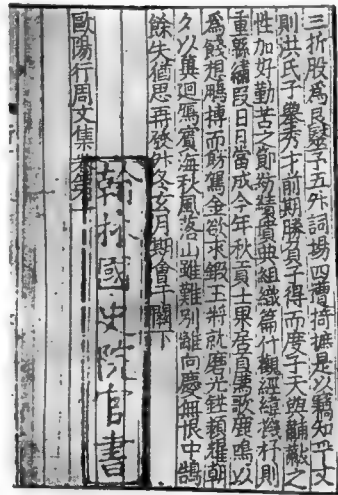 三折股爲良毉子五升詞場四曹掎摭是以竊知乎文
則洪氏子舉秀才前期勝負子得而度乎天與黼黻之
性加好勤苦之節紡績墳典組織篇什觀經緯杼則
重繡段日月當成今年秋貢士果居首薦歌鹿鳴以
爲餞想鵬搏而金欲求鍜玉將就磨光鋩穎朝
夕以冀迴鴈賓海秋風落山雖難別離向慶無恨中鵠
餘失猶思再發升冬玄月期會于闕下
歐陽行周文集卷第十
翰林國史院官書